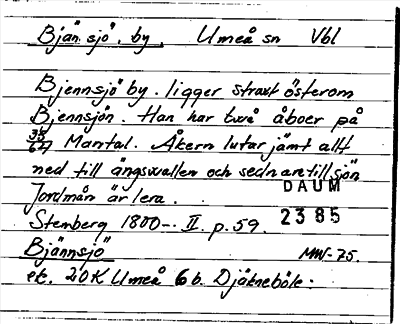 Bjän.sjö, by, Umeå sn Vbl
Bjennsjö by. ligger straxt österom
Bjennsjön. Han har två åboer på
35/64 Mantal. Åkern lutar jämt allt
ned till ängswallen och sednare till sjön
Jordmån är lera.
DAUM
Stenberg 1800-. II. p. 59.
2385
Bjännsjö
MW-75
ek. 20K Umeå 6b. Djäkneböle.